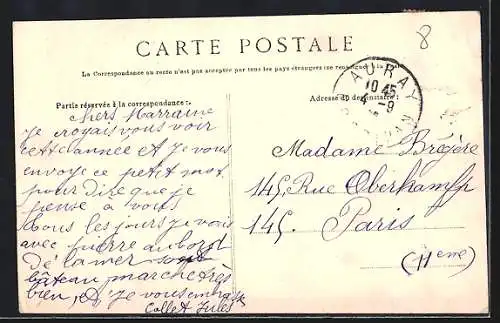 CARTE POSTALE
8
La Correspondance au recto n'est pas acceptée par tous les pays étrangers (se renseigner à la
AURAY
10 45
-9
Partie réservée à la correspondance
Adresse du destinataire
Chers Marraine
Je croyais vous voir
cette année et Je vous
envoye ce petit mot
pour dire que je
pense à vous
Tous les jours Je vais
avec pierre au bord
De la mer
bâteau marche très
bien, Je vous embrasse
Collet Jules
Madame Brégère
145, Rue Oberkampf
145. Paris
(11eme)